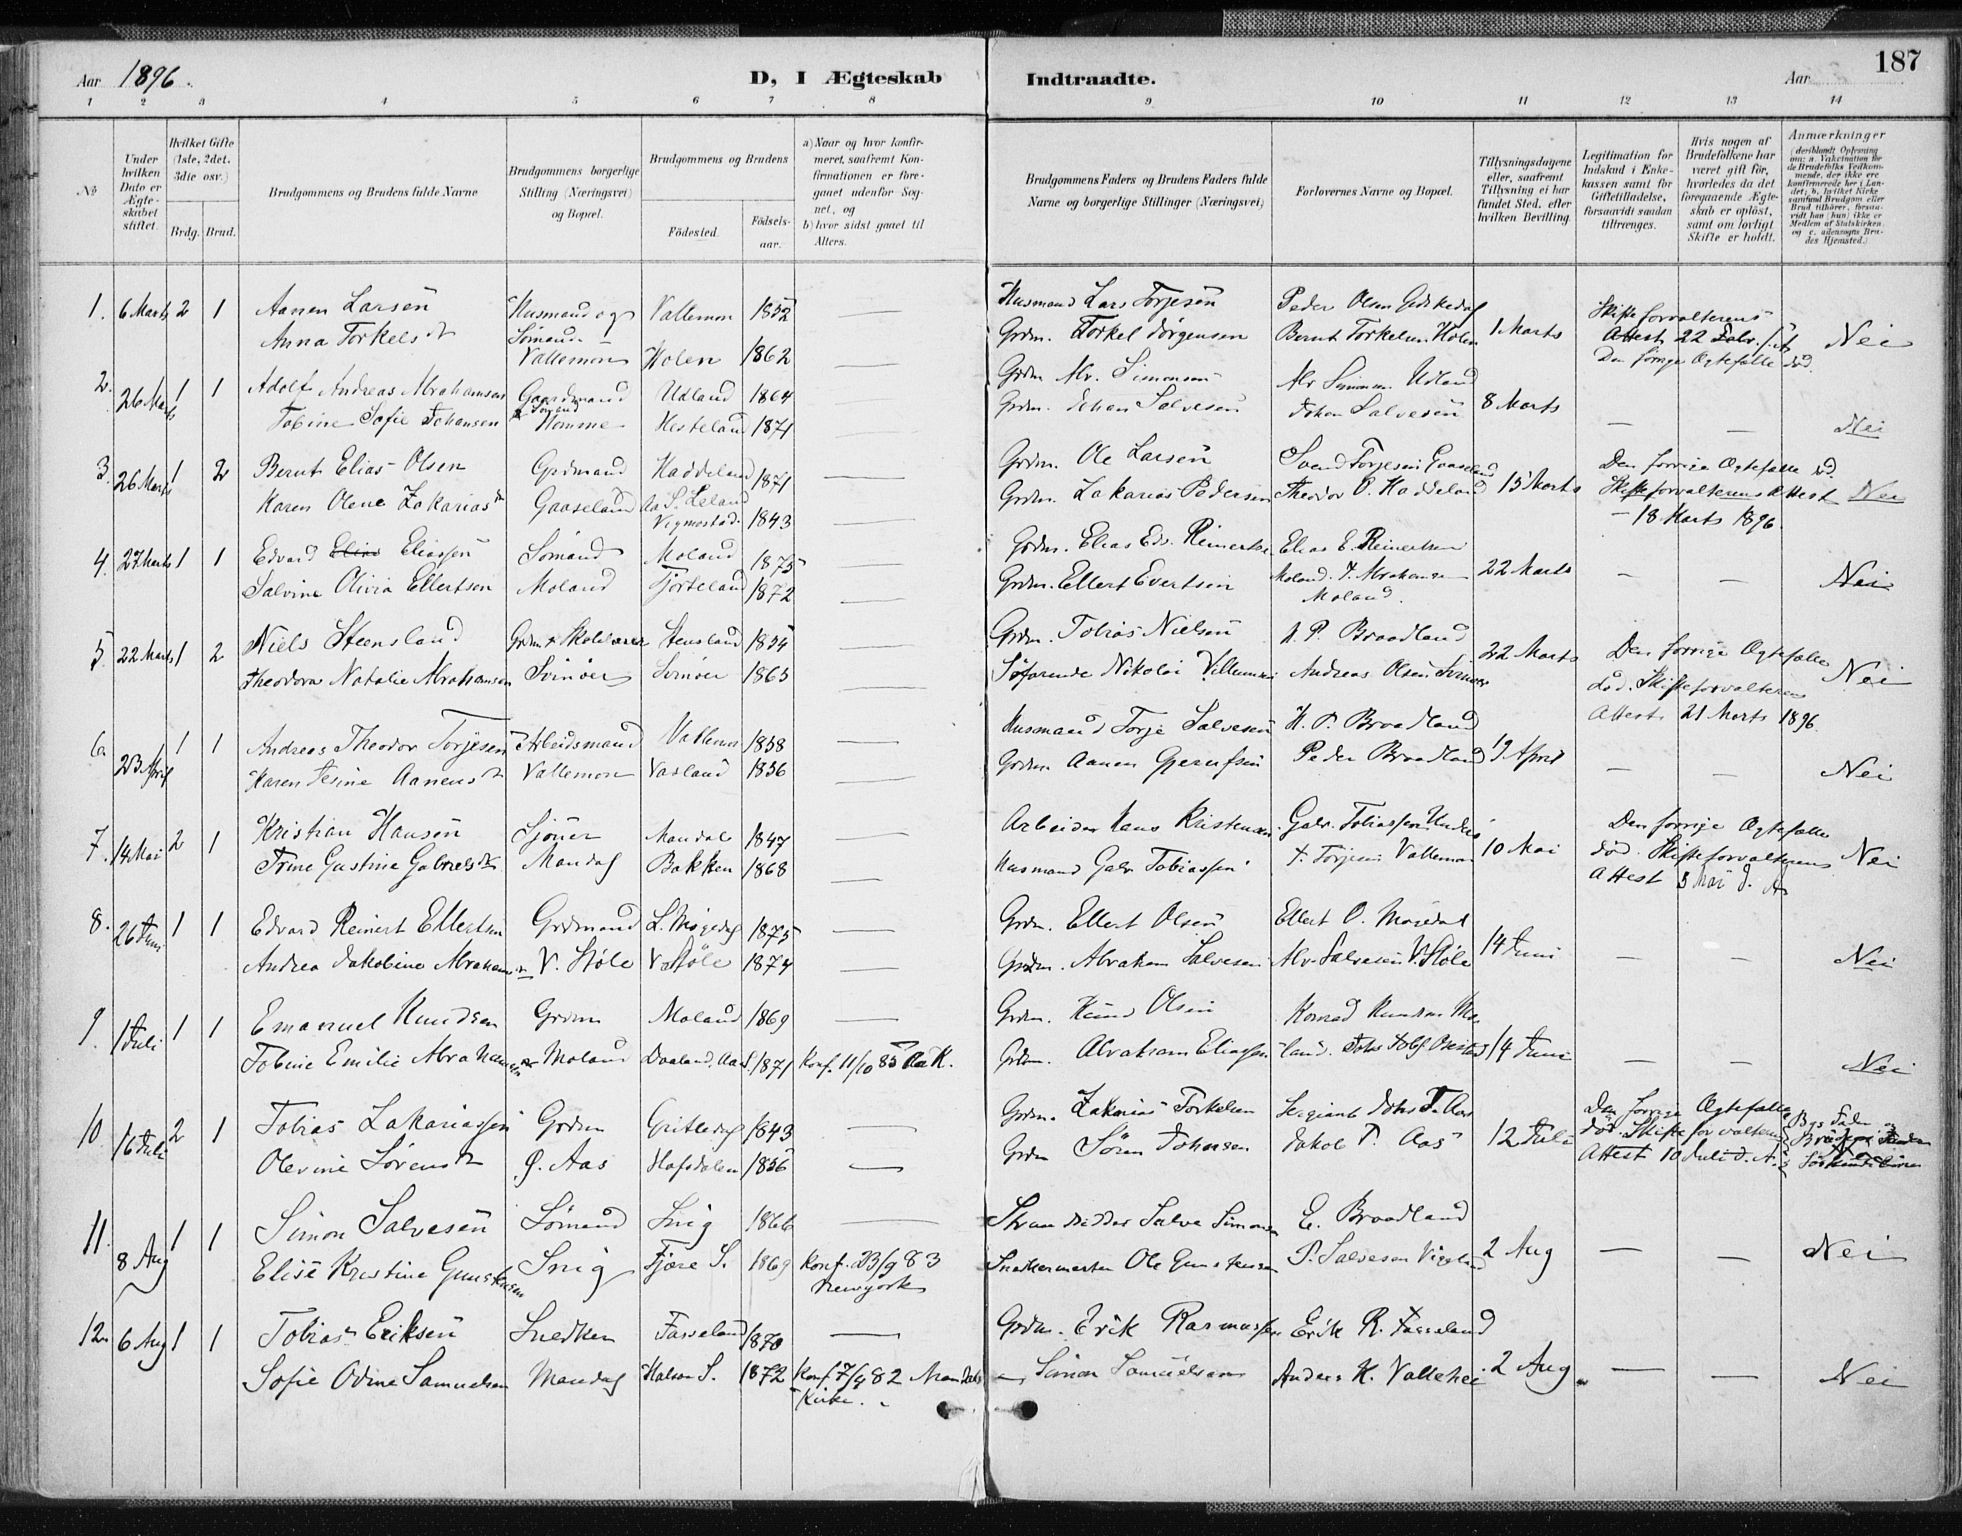 Aar 1896. D, I Ægteskab Indtraadte. Aar 187
1 2 3 4 5 6 7 8 9 10 11 12 13 14
No
Under hvilken Dato er Ægteskabet stiftet.
Hvilket Gifte (1ste, 2det, 3die osv.)
Brdg. Brud.
Brudgommens og Brudens fulde Navne
Brudgommens borgerlige Stilling (Næringsvei) og Bopæl.
Brudgommens og Brudens
Födested. Födselsaar.
a) Naar og hvor konfirmeret, saafremt Konfirmationen er foregaaet udenfor Sognet, og
b) hvor sidst gaaet til Alters.
Brudgommens Faders og Brudens Faders fulde Navne og borgerlige Stillinger (Næringsvei)
Forlovernes Navne og Bopæl.
Tillysningsdagene eller, saafremt Tillysning ei har fundet Sted, efter hvilken Bevilling.
Legitimation for Indskud i Enkekassen samt for Giftetilladelse, forsaavidt saadan tiltrænges.
Hvis nogen af Brudefolkene har været gift för, hvorledes da det foregaaende Ægteskab er oplöst, samt om lovligt Skifte er holdt.
Anmærkninger
1. 6 Marts 2 1 Aanen Larsen Husmand og Vallemon 1852 — Husmand Lars Torjesen Peder Olsen 1 Marts Skifteforvalterens
Anna Torkelsdt Sömand Vallemon Holen 1862 — Grdm. Torkel Jörgensen Bernt Torkelsen Holen Attest 22 Febr. Nei
Den forrige Ægtefælle död.
2. 26 Marts 1 1 Adolf Andreas Abrahamsen Gaardmand Udland 1864 — Grdm. Abr. Simonsen Abr Simonsen Udland
Tobine Sofie Johansen Sömand Homme Hesteland 1871 — Grdm. Johan Salvesen Johan Salvesen 8 Marts — — Nei
3. 26 Marts 1 2 Bernt Elias Olsen Grdmand Haddeland 1871 — Grdm. Ole Larsen Svend Torjesen Gaaseland 15 Marts Den forrige Ægtefælle död.
Karen Olene Zakariasdt Gaaseland Vigmostad 1843 — Grdm. Zakarias Pedersen Theodor O. Haddeland Skifteforvalterens Attest Nei
18 Marts 1896.
4. 27 Marts 1 1 Edvard Elias Eliassen Sömand Moland 1875 — Grdm. Elias Edv. Reinertsen Elias E. Reinertsen
Salvine Olivia Ellertsen Moland Tjorteland 1872 — Grdm. Ellert Evertsen Moland. T. Abrahamsen Moland. 22 Marts — — Nei
5. 22 Marts 1 2 Niels Steensland Grdm & Skolelærer Stensland 1854 — Grdm. Tobias Nielsen H. P. Braadland 22 Marts Den forrige Ægtefælle
Theodora Natalie Abrahamsen Svinöer Svinöer 1865 — Söfarende Nikolai Villumsen Andreas Olsen Svinöer död. Skifteforvalterens Nei
Attest 21 Marts 1896.
6. 23 April 1 1 Andreas Theodor Torjesen Arbeidsmand Vallemon 1858 — Husmand Torje Salvesen H. P. Braadland 19 April
Karen Aanensdt Vallemon 1856 — Grdm. Aanen Peder Braadland — — Nei
7. 14 Mai 2 1 Kristian Hansen Sjöuer Mandal 1847 — Arbeider Hans Kristensen Gabr. Tobiassen 10 Mai Den forrige Ægtefælle
Trine Gustine Gabrielsdt Mandal Bakken 1868 — Husmand Gabr Tobiassen T. Torjesen Vallemon död. Skifteforvalterens Nei
Attest 5 Mai d. A.
8. 26 Juni 1 1 Edvard Reinert Ellertsen Grdmand L. Mögedal 1875 — Grdm. Ellert Olsen Ellert O. Mögedal
Andrea Jakobine Abrahamsen V. Støle V. Støle 1874 — Grdm. Abraham Salvesen Abr Salvesen V. Støle 14 Juni — — Nei
9. 1 Juli 1 1 Emanuel Knudsen Grdm Moland 1869 — Grdm. Knud Olsen Konrad Knudsen Mo-
Tobine Emilie Abrahamsen Moland Daaland. 1871 Konf. 11/10 85 Grdm. Abraham Eliassen land. 14 Juni — — Nei
10. 16 Juli 2 1 Tobias Zakariassen Grdm 1843 — Grdm. Zakarias Torkelsen Sergiant Johs T. Aas 12 Juli Den forrige Ægtefælle
Olevine Sörensdt Ö. Aas Hafsdalen 1856 — Grdm Sören Johnsen Jakob T. Aas död. Skifteforvalterens
Attest 10 Juli d. A.
11. 8 Aug 1 1 Simon Salvesen Sömand Snig 1866 — Skrædder Salve Simonsen E. Braadland
Elise Kristine Gunstensen Snig Fjære S. 1869 Konf. 23/9 83 Newyork Snedkermester Ole Gunstensen P. Salvesen Vigeland 2 Aug — — Nei
12. 6 Aug 1 1 Tobias Eriksen Snedker Fasseland 1870 — Grdm. Erik Rasmussen Erik R. Fasseland
Sofie Odine Samuelsen Mandal Halsen S. 1872 Konf. 82 Mandals Kirke. — Simon Samuelsen Anders K. Vallehei 2 Aug. — — Nei